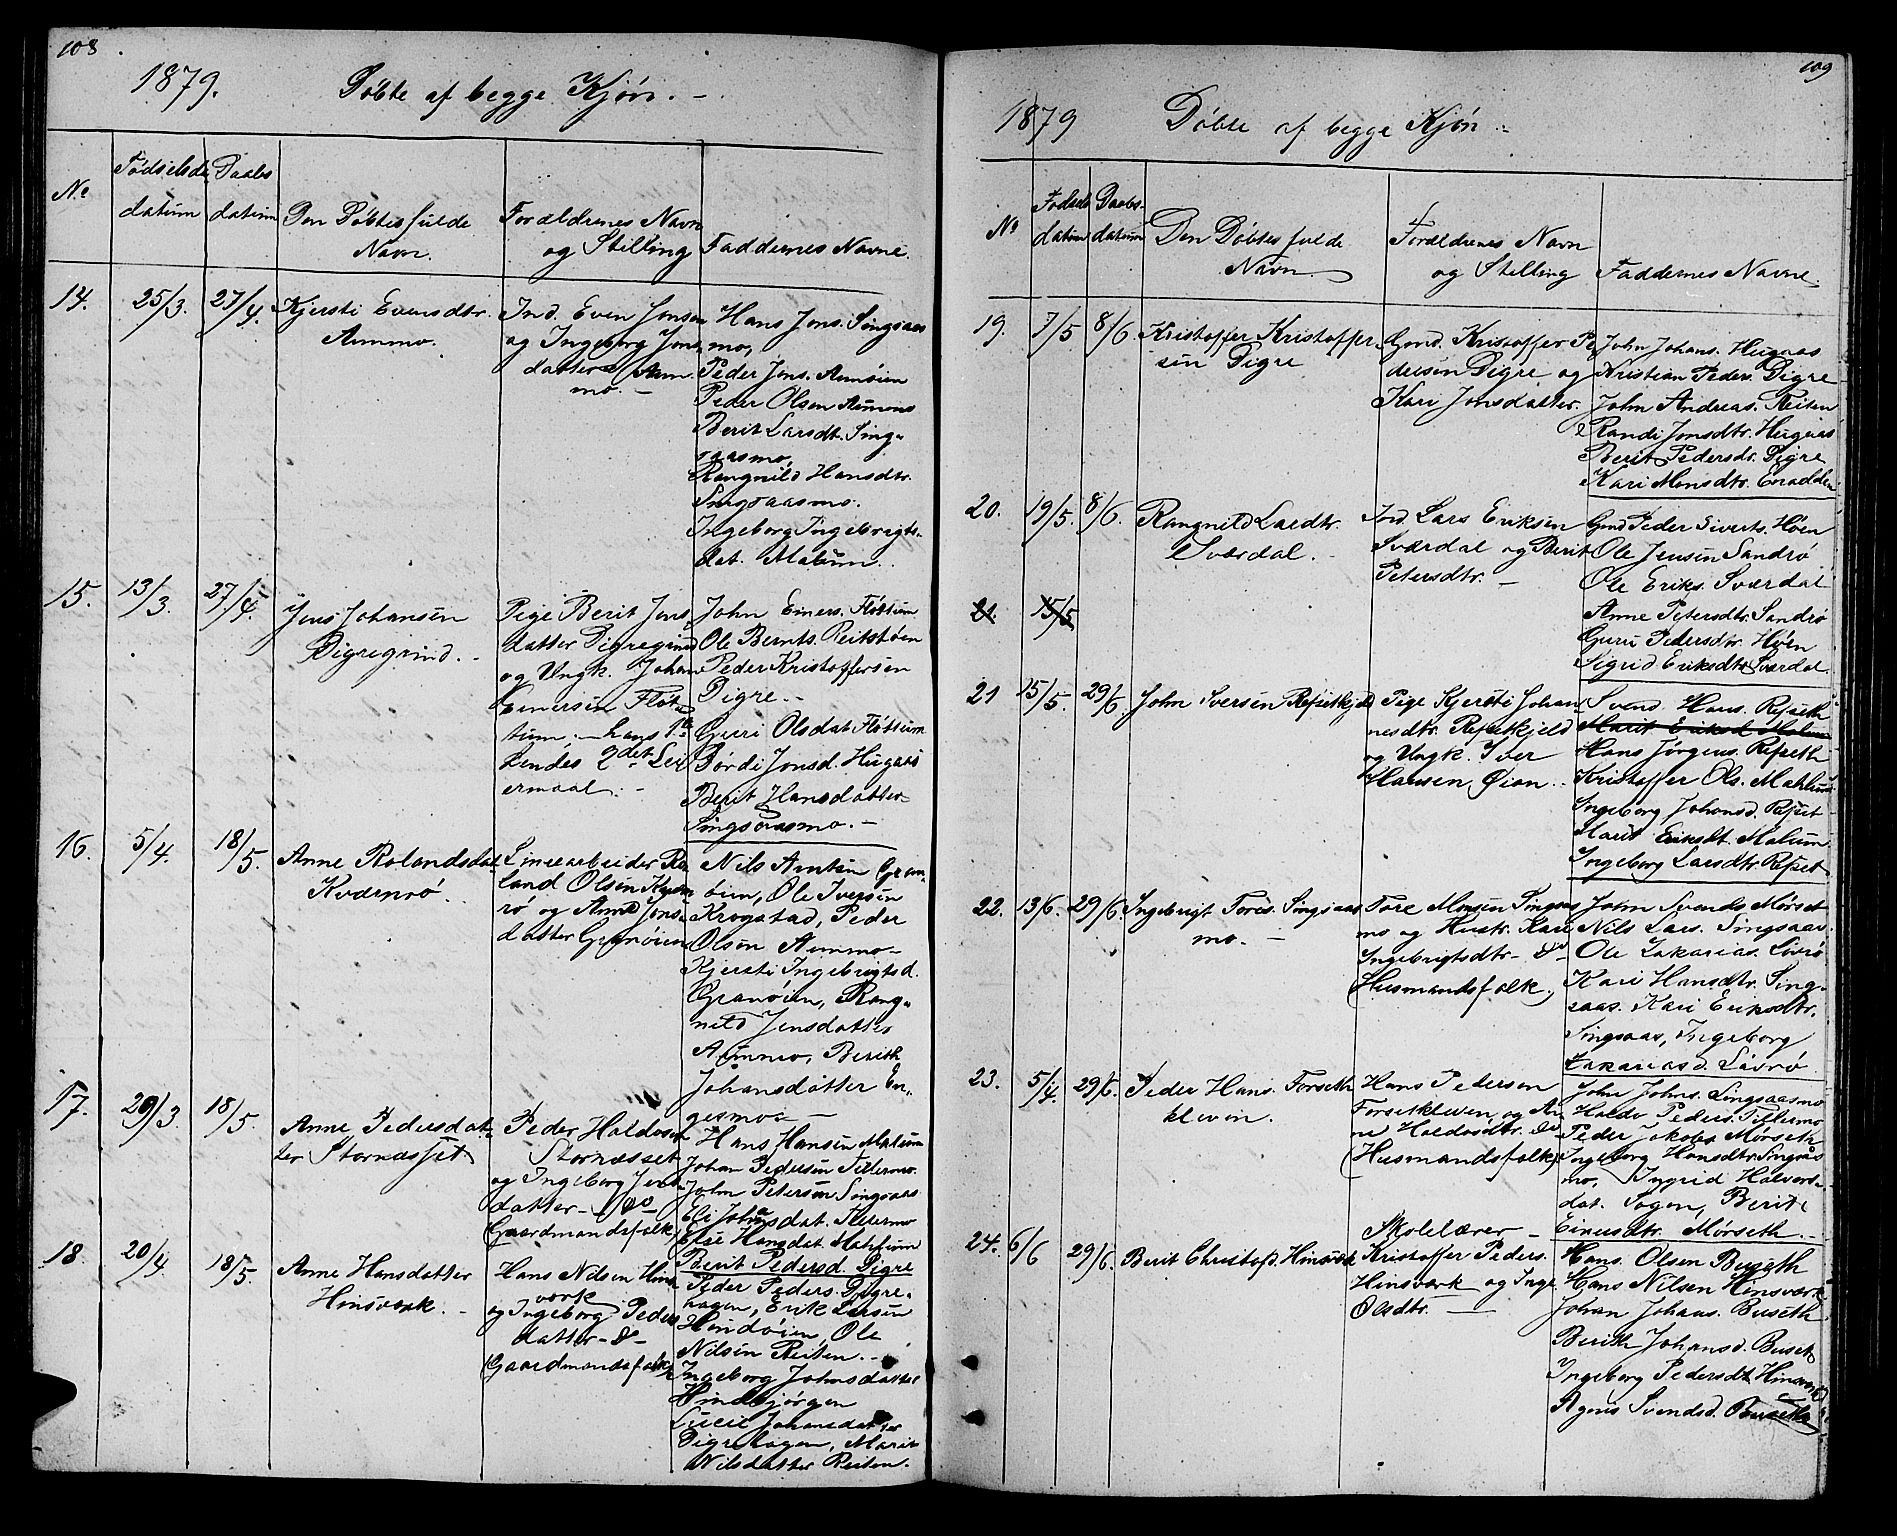 108
1879. Döbte af begge Kjön. –
No
Fødselsda
datum
Daabs
datum
Den Döbtes fulde
Navn.
Forældrenes Navn
og Stilling
Faddernes Navne.
14. 25/3. 27/4. Kjersti Evensdtr.
Aunmo.
Ind. Even Jonsen
og Ingeborg Jons
datter Aun
mo. –
Hans Jons. Singsaas
mo,
Peder Jons. Aunöien
Peder Olsen Aunmo
Berit Larsdt. Sing-
saasmo,
Rangnild Hansdtr.
Singsaasmo.
Ingeborg Ingebrigts-
dat. Malum.
15. 13/3. 27/4. Jens Johansen
Digregrind. –
Pige Berit Jens
datter Digregrind
og Ungk. Johan
Einersen Flöt-
tum, – hans 1te
hendes 2det Lei
ermaal. –
John Einers. Flöttum
Ole Bernts. Reitstöen
Peder Kristoffersen
Digre. –
Guri Olsdat. Flöttum
Dordi Jonsd. Hugaas
Berit Hansdatter
Singsaasmo. –
16. 5/4. 18/5. Anne Rolandsdat.
Kvernrö.
Linearbeider Ro
land Olsen Kvern
rö og Anne Jons-
datter Granöien
Nils Amtsen Gran-
öien, Ole Iversen
Krogstad, Peder
Olsen Aunmo –
Kjersti Ingebrigtsd.
Granöien, Rang-
nild Jensdatter
Aunmo, Berith
Johansdatter En-
gesmo. –
17. 29/3. 18/5. Anne Pedersdat-
ter Stornæsset
Peder Haldosen
Stornæsset
og Ingeborg Jens
datter – do –
Gaardmandsfolk
Hans Hansen Malum
Johan Pedersen Tillermo
John Petersen Singsaas
Eli Johansdat. Tillermo
Else Hansdat. Malhum
Berit Pedersd. Digre
18. 20/4. 18/5. Anne Hansdatter
Hinsværk. –
Hans Nilsen Hins
værk
og Ingeborg Peders
datter – do –
Gaardmandsfolk
Peder Peders. Digre-
hagen, Erik Larsen
Hindöien, Ole
Nilsen Reiten. –
Ingeborg Johnsdatter
Hindbjörgen
Lucie Johansdatter
Digrehagen, Marit
Nilsdatter Reiten.
109
1879 Döbte af begge Kjön –
No
Fødsels
datum
Daabs.
datum
Den Döbtes fulde
Navn.
Forældrenes Navn
og Stilling
Faddernes Navne
19. 7/5 8/6 Kristoffer Kristoffer
sen Digre
Gmd. Kristoffer Pe
dersen Digre og
Kari Jonsdatter.
John Johans. Hugaas
Kristian Peders. Digre
John Andreas. Reiten
Randi Jonsdtr. Hugaas
Berit Pedersdr. Digre
Kari Monsdtr. Enodden
20. 19/5. 8/6. Rangnild Larsdtr.
Sværdal. –
Ind. Lars Eriksen
Sværdal og Berit
Petersdtr. –
Gmd Peder Siverts. Höen
Ole Jensen Sandrö
Ole Eriks. Sværdal
Anne Petersdtr. Sandrö
Guru Pedersdtr. Höen
Sigrid Eriksdtr. Sværdal
21 15/5
21 15/5. 29/6. John Iversen Refsetkjeld
Pige Kjersti Johan
nesdtr. Refsetkjeld
og Ungk. Iver
Hansen Öian.
Svend Hans. Refseth
Marit Eriksd. Malum
Hans Jörgens. Refseth
Kristoffer Ols. Malhum
Ingeborg Johansd. Refset
Marit Eriksdt. Malum
Ingeborg Larsdtr. Refset
22. 13/6. 29/6 Ingebrigt Tores. Singsaas
mo. –
Tore Monsen Singsaas
mo og Hustr. Kari
Ingebrigtsdtr – do –
(Husmandsfolk)
John Svends Mörset
Nils Lars. Singsaas.
Ole Zakarias. Lövrö
Kari Hansdtr. Sing-
saas. Kari Eriksdtr.
Singsaas, Ingeborg
Zakariasd. Lövrö
23. 5/4. 29/6. Peder Hans. Forseth
kleven.
Hans Pedersen
Forsetkleven og An
ne Haldosdtr. do –
(Husmandsfolk)
John Johns. Singsaasmo
Haldo Peders. Tillermo
Peder Jakobs. Mörseth
Ingeborg Hansdtr. Singsås
mo, Ingrid Halvors-
dat. Sogen, Berit
Einersdtr. Mörseth. –
24. 6/6 29/6. Berit Christofd. Hinsværk
Skolelærer –
Kristoffer Peders.
Hinsværk og Inge
Olsdtr. –
Hans. Olsen Buseth
Hans Nilsen Hinsværk
Johan Johans. Buseth
Berith Johansd. Buset
Ingeborg Pedersdt. Hinsværk
Agnis Svendsd. Buseth